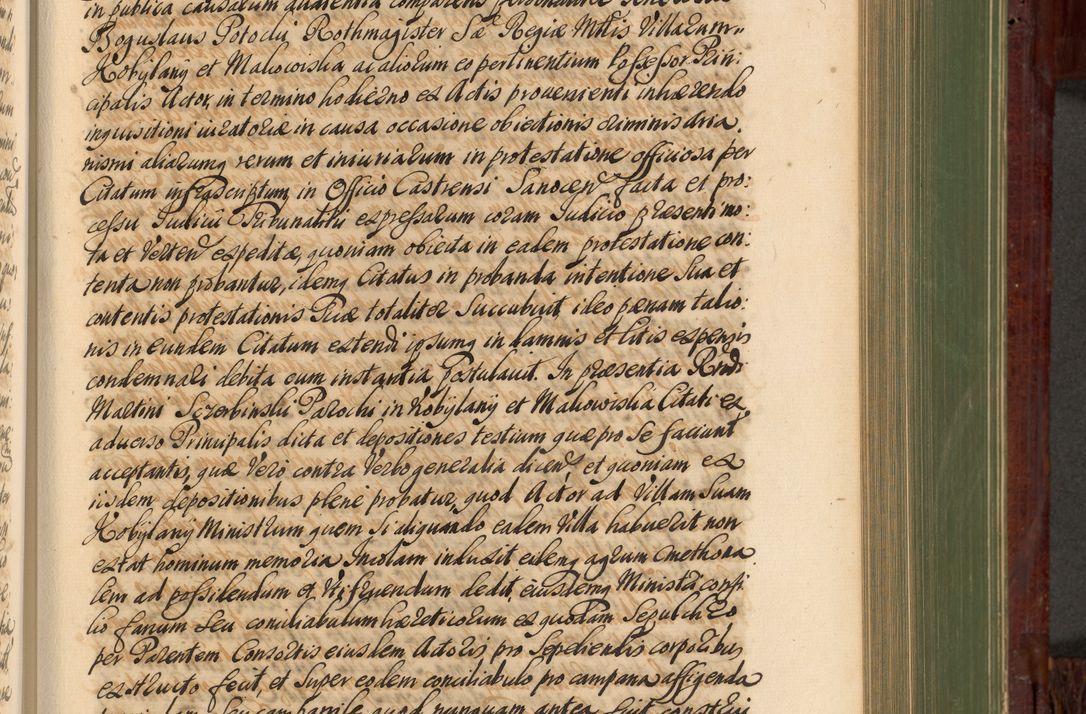 in publica causarum audientia comparens personaliter Generosus
Boguslaus Potocki Rothmagister Sae Regiae Mttis Villarum
Kobylany et Makowiska ac aliorum eo pertinentium Possessor Prin
cipalis Actor, in termino hodierno ex Actis proveniente inhaerendo
inquisitioni iuratoriae in causa occasione obiectionis criminis Aria.
nismi aliarumq rerum et iniuriarum in protestatione officiosa per
Citatum infrascriptum, in Officio Castrensi Sanocen facta et pro:
cessu Iudicii Tribunalitii expressarum coram Iudicio praesenti mo:
ta et Verten expeditae, quoniam obiecta in eadem protestatione con:
tenta non probantur, idemq Citatus in probanda intentione Sua et
contentis protestationis Suae totaliter Succubuit ideo paenam talio:
nis in eundem Citatum extendi ipsumq in damnis et litis expensis
condemnari debita cum instantia postulavit. In praesentia Rndi
Martini Sczerbinski Parochi in Kobylany et Makowiska Citati ex
adverso Principalis dicta et depositiones testium quae pro Se faciunt
acceptantis, quae Vero contra Verbo generalia dicen et quoniam ex
iisdem depositionibus plene probatur, quod Actor ad Villam Suam
Kobylany Ministrum quem Si aliquando eadem Villa habuerit non
extat hominum memoria Incolam induxit eidemq agrum Cmethona
lem ad possidendum et Vtifruendum dedit, eiusdemq Ministri consi
lio fanum Seu conciliabulum haereticorum ex quodam Sepulchro
per Parentem Consortis eiusdem Actoris pro Sepediendis corporibus
extructo fecit, et Super eodem conciliabulo pro campana affigenda
Seu campanile quod nunquam antea fuit construi